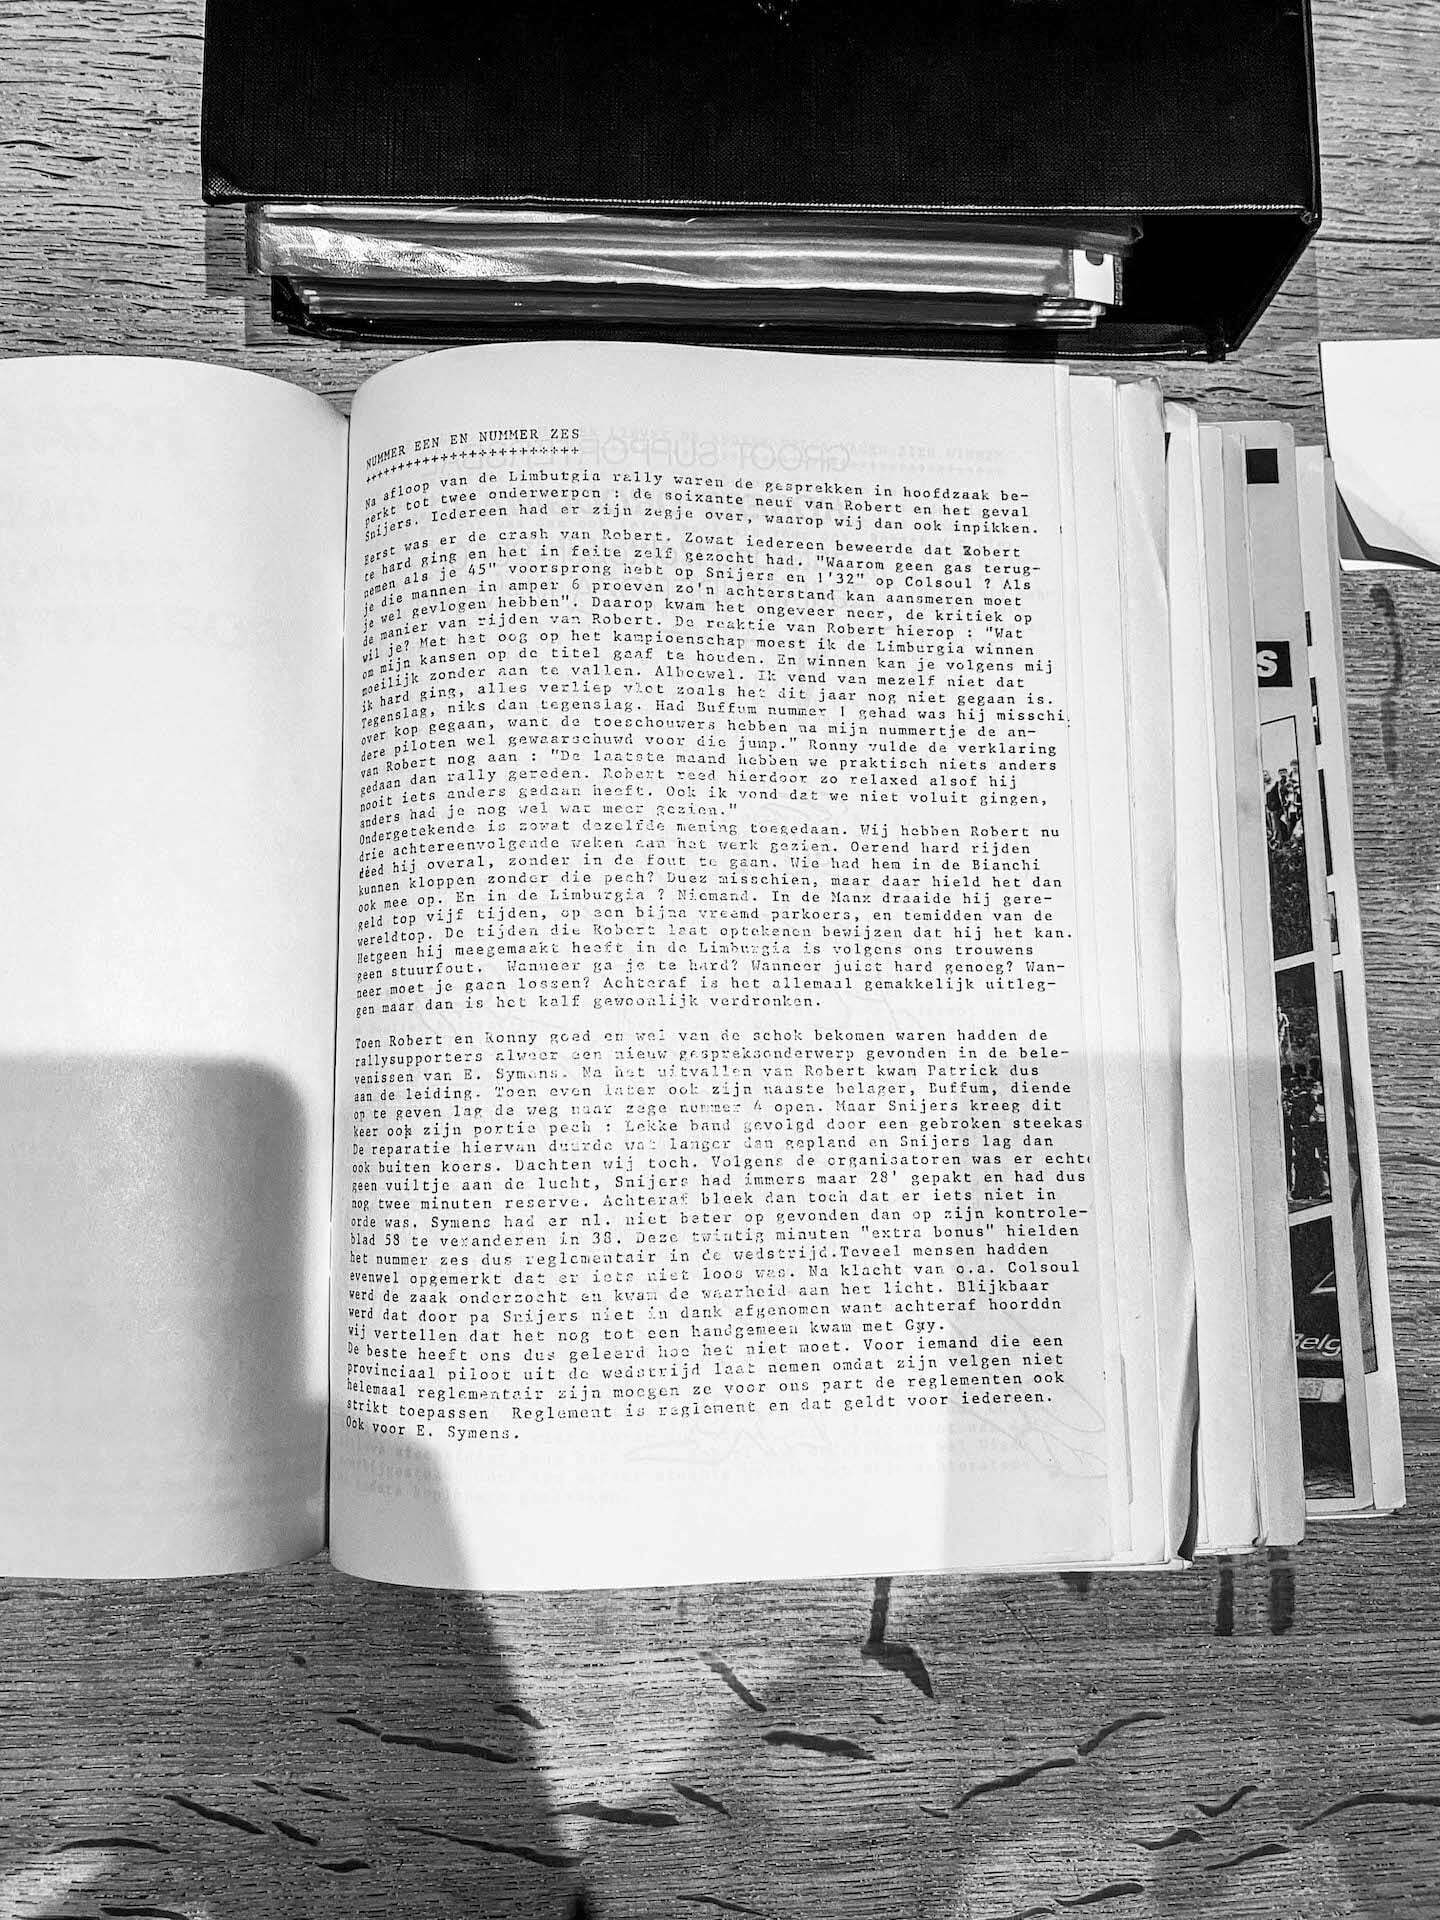 NUMMER EEN EN NUMMER ZES
++++++++++++++++++++++++
Na afloop van de Limburgia rally waren de gesprekken in hoofdzaak be-
perkt tot twee onderwerpen : de soixante neuf van Robert en het geval
Snijers. Iedereen had er zijn zegje over, waarop wij dan ook inpikken.
Eerst was er de crash van Robert. Zowat iedereen beweerde dat Robert
te hard ging en het in feite zelf gezocht had. "Waarom geen gas terug-
nemen als je 45" voorsprong hebt op Snijers en 1'32" op Colsoul ? Als
je die mannen in amper 6 proeven zo'n achterstand kan aansmeren moet
je wel gevlogen hebben". Daarop kwam het ongeveer neer, de kritiek op
de manier van rijden van Robert. De reaktie van Robert hierop : "Wat
wil je? Met het oog op het kampioenschap moest ik de Limburgia winnen
om mijn kansen op de titel gaaf te houden. En winnen kan je volgens mij
moeilijk zonder aan te vallen. Alhoewel. Ik vond van mezelf niet dat
ik hard ging, alles verliep vlot zoals het dit jaar nog niet gegaan is.
Tegenslag, niks dan tegenslag. Had Buffum nummer 1 gehad was hij misschi
over kop gegaan, want de toeschouwers hebben na mijn nummertje de an-
dere piloten wel gewaarschuwd voor die jump." Ronny vulde de verklaring
van Robert nog aan : "De laatste maand hebben we praktisch niets anders
gedaan dan rally gereden. Robert reed hierdoor zo relaxed alsof hij
nooit iets anders gedaan heeft. Ook ik vond dat we niet voluit gingen,
anders had je nog wel wat meer gezien."
Ondergetekende is zowat dezelfde mening toegedaan. Wij hebben Robert nu
drie achtereenvolgende weken aan het werk gezien. Oerend hard rijden
déed hij overal, zonder in de fout te gaan. Wie had hem in de Bianchi
kunnen kloppen zonder die pech? Duez misschien, maar daar hield het dan
ook mee op. En in de Limburgia ? Niemand. In de Manx draaide hij gere-
geld top vijf tijden, op een bijna vreemd parkoers, en temidden van de
wereldtop. De tijden die Robert laat optekenen bewijzen dat hij het kan.
Hetgeen hij meegemaakt heeft in de Limburgia is volgens ons trouwens
geen stuurfout.  Wanneer ga je te hard? Wanneer juist hard genoeg? Wan-
neer moet je gaan lossen? Achteraf is het allemaal gemakkelijk uitleg-
gen maar dan is het kalf gewoonlijk verdronken.
Toen Robert en Ronny goed en wel van de schok bekomen waren hadden de
rallysupporters alweer een nieuw gespreksonderwerp gevonden in de bele-
venissen van E. Symens. Na het uitvallen van Robert kwam Patrick dus
aan de leiding. Toen even later ook zijn naaste belager, Buffum, diende
op te geven lag de weg naar zege nummer 4 open. Maar Snijers kreeg dit
keer ook zijn portie pech : Lekke band gevolgd door een gebroken steekas
De reparatie hiervan duurde wat langer dan gepland en Snijers lag dan
ook buiten koers. Dachten wij toch. Volgens de organisatoren was er echte
geen vuiltje aan de lucht, Snijers had immers maar 28' gepakt en had dus
nog twee minuten reserve. Achteraf bleek dan toch dat er iets niet in
orde was. Symens had er nl. niet beter op gevonden dan op zijn kontrole-
blad 58 te veranderen in 38. Deze twintig minuten "extra bonus" hielden
het nummer zes dus reglementair in de wedstrijd.Teveel mensen hadden
evenwel opgemerkt dat er iets niet loos was. Na klacht van o.a. Colsoul
werd de zaak onderzocht en kwam de waarheid aan het licht. Blijkbaar
werd dat door pa Snijers niet in dank afgenomen want achteraf hoorddn
wij vertellen dat het nog tot een handgemeen kwam met Guy.
De beste heeft ons dus geleerd hoe het niet moet. Voor iemand die een
provinciaal piloot uit de wedstrijd laat nemen omdat zijn velgen niet
helemaal reglementair zijn moegen ze voor ons part de reglementen ook
strikt toepassen  Reglement is reglement en dat geldt voor iedereen.
Ook voor E. Symens.
S
Belg